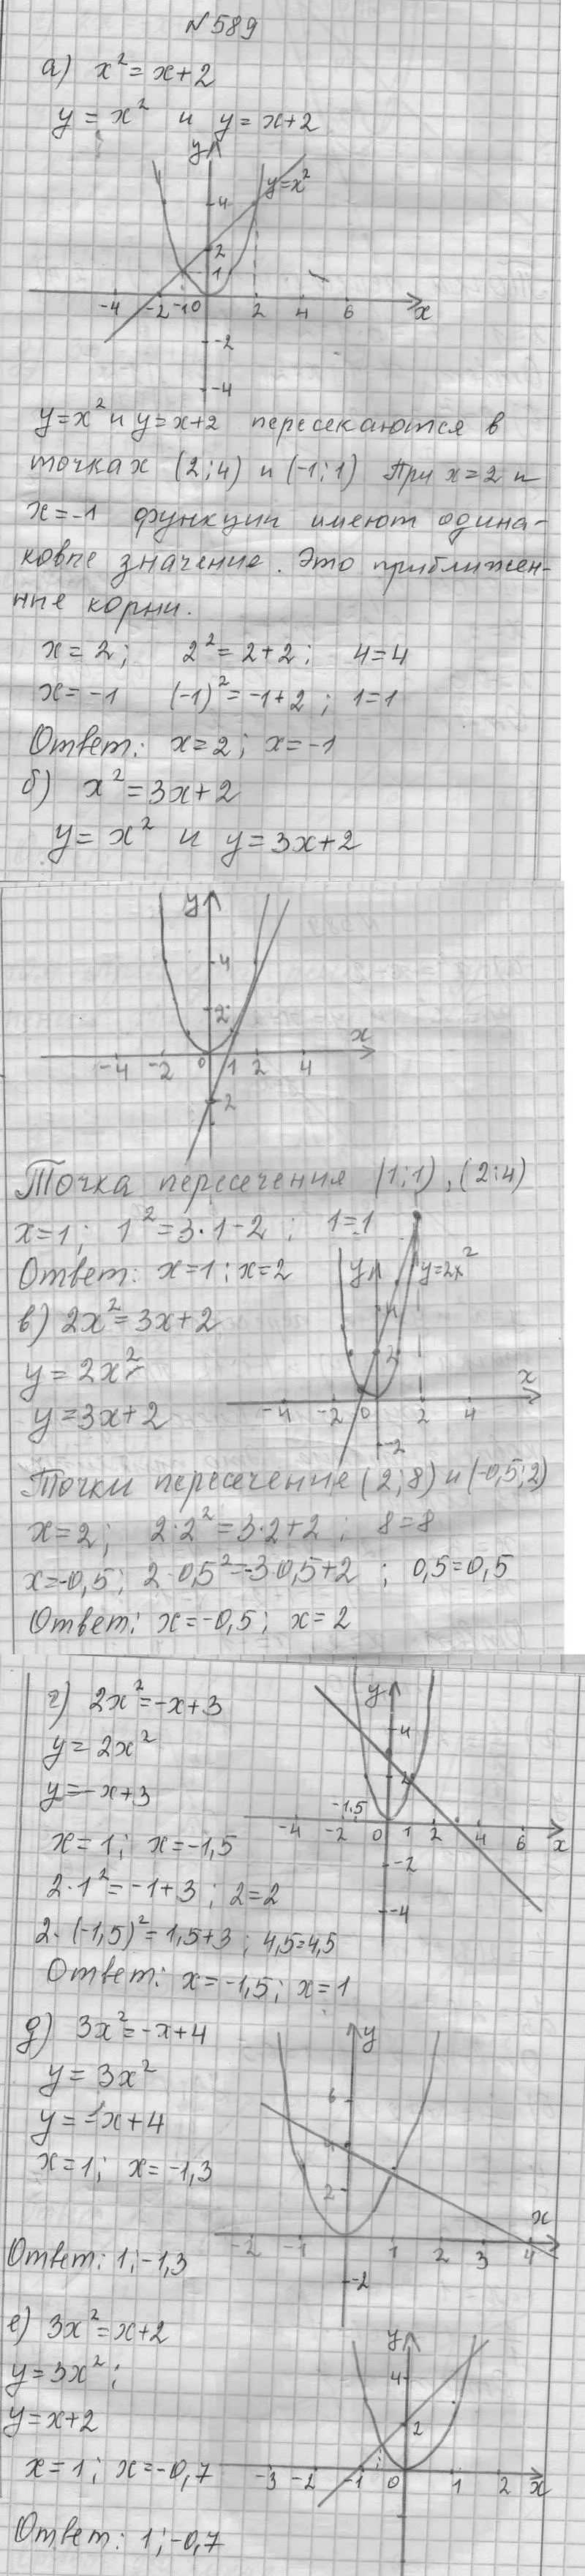 №589
а) x² = x+2
y = x² и y = x+2
y
y=x²
4
2
1
-4 -2 -1 0 2 4 6 x
-2
-4
y=x² и y=x+2 пересекаются в
точках (2;4) и (-1;1) При x=2 и
x=-1 функции имеют одина-
ковые значение. Это приближен-
ные корни.
x=2; 2²=2+2; 4=4
x=-1 (-1)²=-1+2; 1=1
Ответ: x=2; x=-1
б) x²=3x+2
y=x² и y=3x+2
y
4
2
x
-4 -2 0 1 2 4
-2
Точка пересечения (1;1), (2;4)
x=1; 1²=3·1-2; 1=1
Ответ: x=1; x=2
y y=2x²
в) 2x²=3x+2
y=2x²
4
2
y=3x+2
x
-4 -2 0 2 4
-2
Точки пересечение (2;8) и (-0,5;2)
x=2; 2·2²=3·2+2; 8=8
x=-0,5; 2·0,5²=-3·0,5+2; 0,5=0,5
Ответ: x=-0,5; x=2
г) 2x²=-x+3
y
y=2x²
4
y=-x+3
2
-1,5
-4 -2 0 1 2 4 6 x
x=1; x=-1,5
-2
2·1²=-1+3; 2=2
-4
2·(-1,5)²=1,5+3; 4,5=4,5
Ответ: x=-1,5; x=1
д) 3x²=-x+4
y
y=3x²
6
y=-x+4
4
x=1; x=-1,3
2
x
-2 -1 1 2 3 4
Ответ: 1;-1,3
-2
е) 3x²=x+2
y
y=3x²;
4
y=x+2
2
x=1; x=-0,7
-3 -2 -1 0 1 2 x
Ответ: 1;-0,7